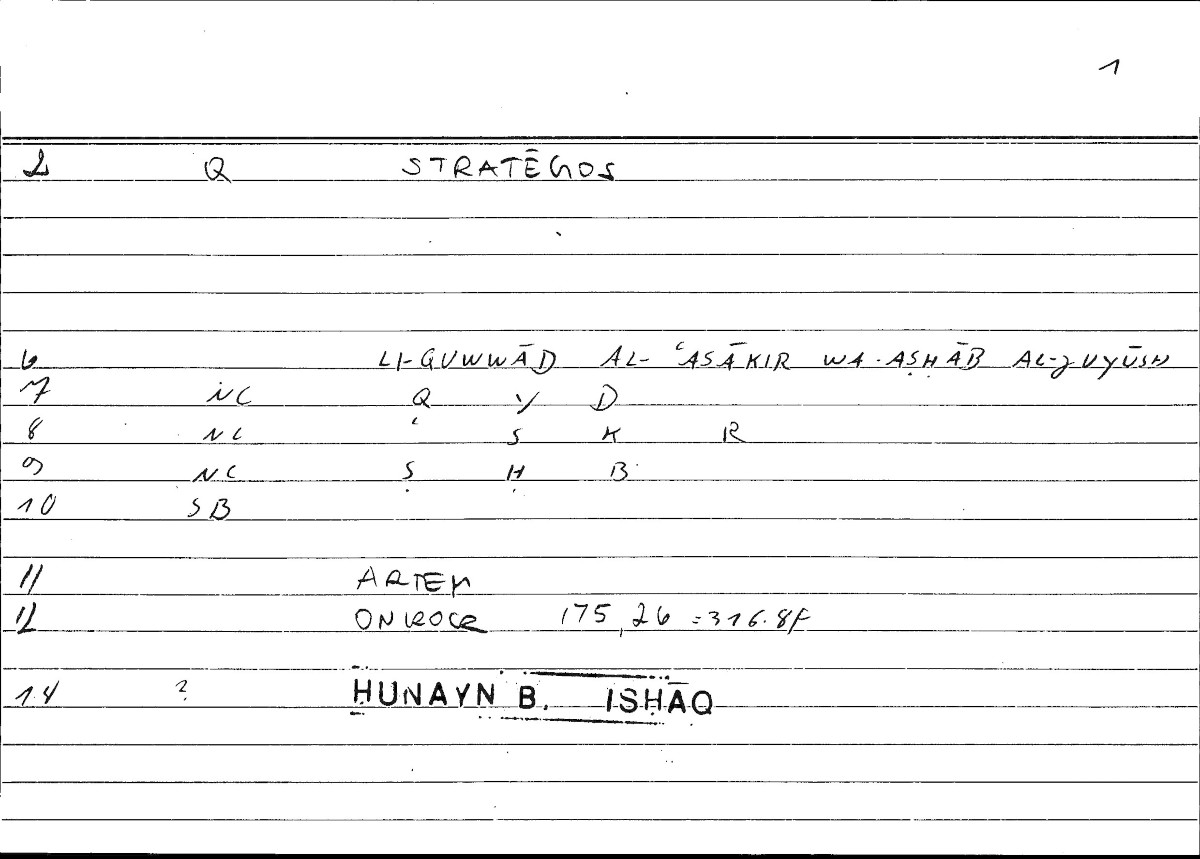 1
2 Q STRATĒGOS
6 LI-QUWWĀD AL-ʿASĀKIR WA-AṢḤĀB AL-JUYŪSH
7 NC Q Y D
8 NC ʿ S K R
9 NC Ṣ Ḥ B
10 SB
11 ARTEM
12 ONIROCR 175,26 =316.8F
14 ? ḤUNAYN B. ISḤĀQ